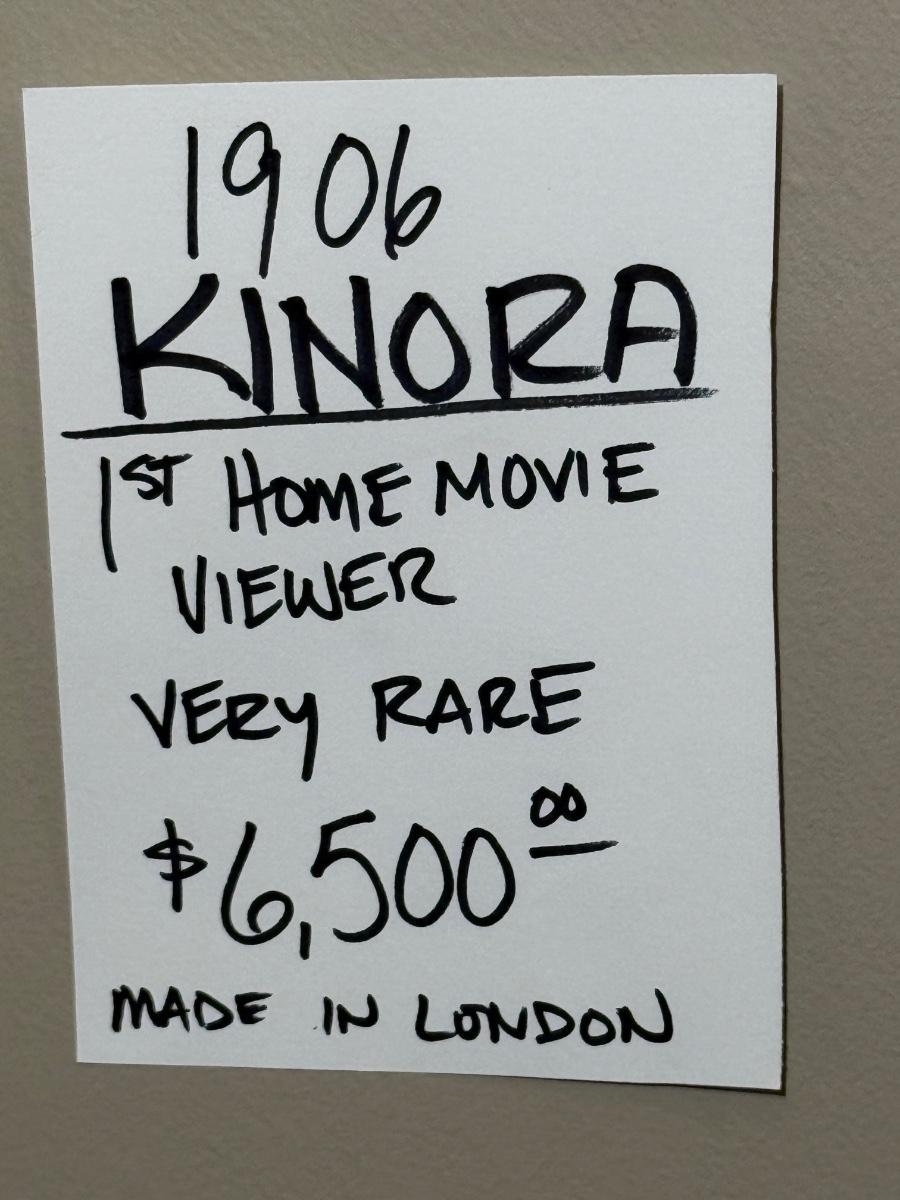 1906
KINORA
1ST HOME MOVIE
VIEWER
VERY RARE
$6,50000
MADE IN LONDON